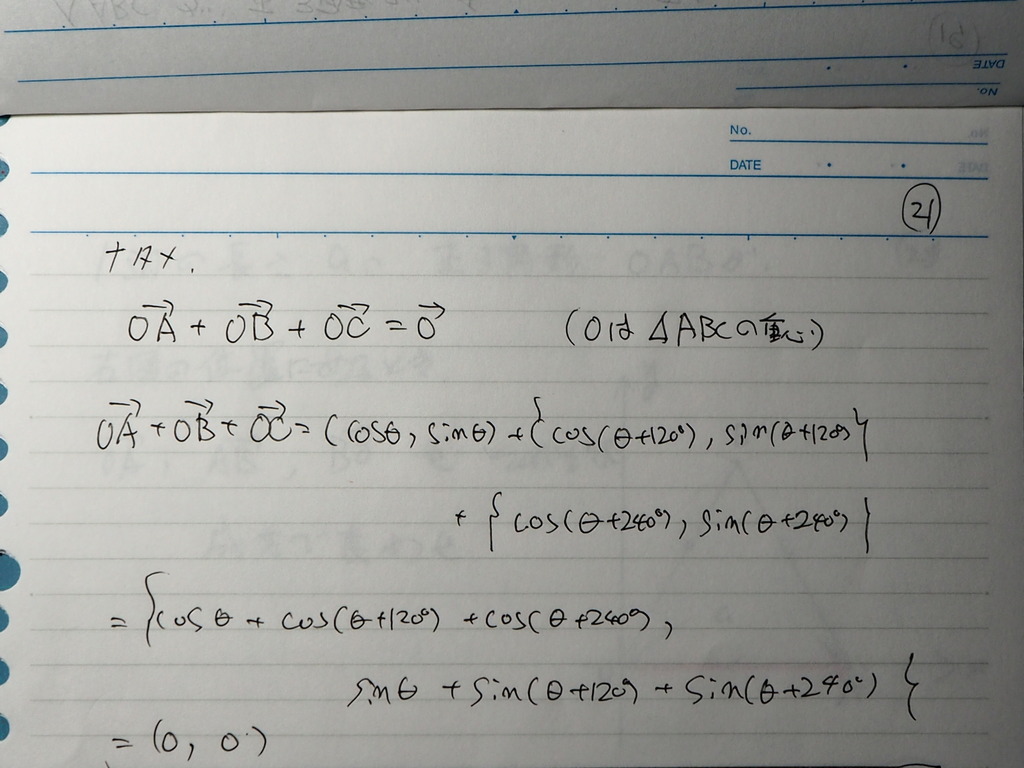 No.
DATE
21
OA + OB + OC = 0 (Oは△ABCの重心)
OA + OB + OC = (cosθ, sinθ) + {cos(θ+120°), sin(θ+120°)}
+ {cos(θ+240°), sin(θ+240°)}
= {cosθ + cos(θ+120°) + cos(θ+240°),
sinθ + sin(θ+120°) + sin(θ+240°)}
= (0, 0)